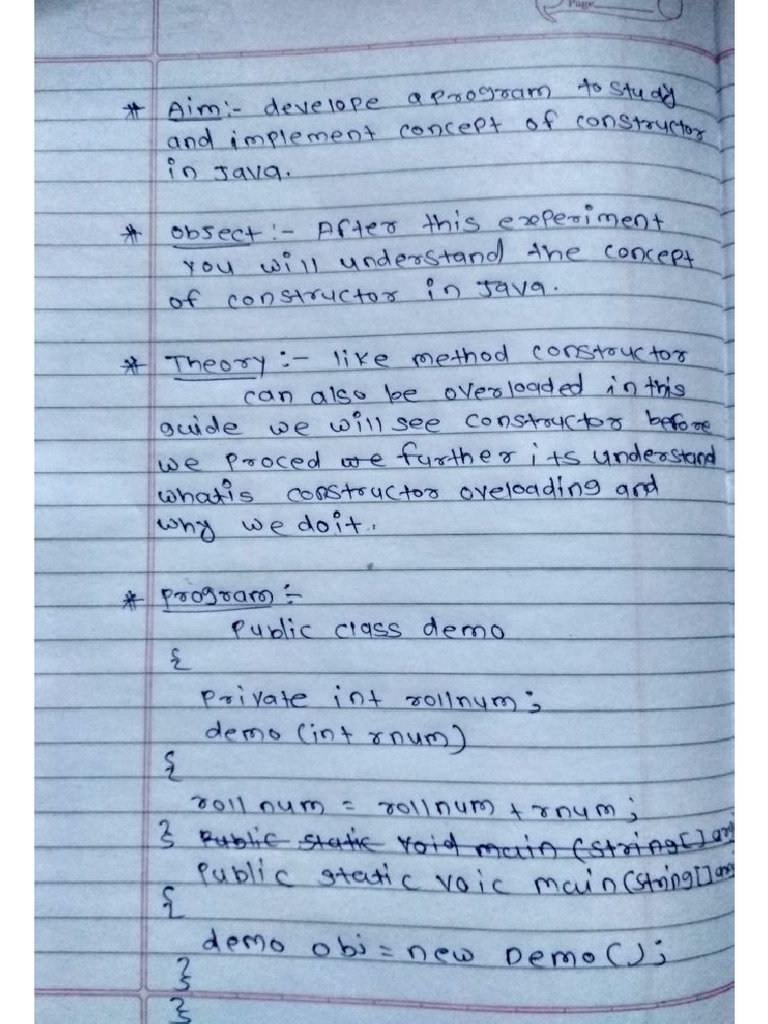 Page
* Aim:- develope a program to study
and implement concept of constructor
in Java.
* Obsect:- After this experiment
you will understand the concept
of constructor in Java.
* Theory:- like method constructor
can also be overloaded in this
guide we will see constructor before
we proced we further its understand
whatis constructor oveloading and
why we doit.
* Program:-
Public class demo
{
Private int rollnum;
demo (int rnum)
{
rollnum = rollnum + rnum;
} Public static void main (string[] arg
Public static voic main (string[] arg
{
demo obj = new Demo();
}
}